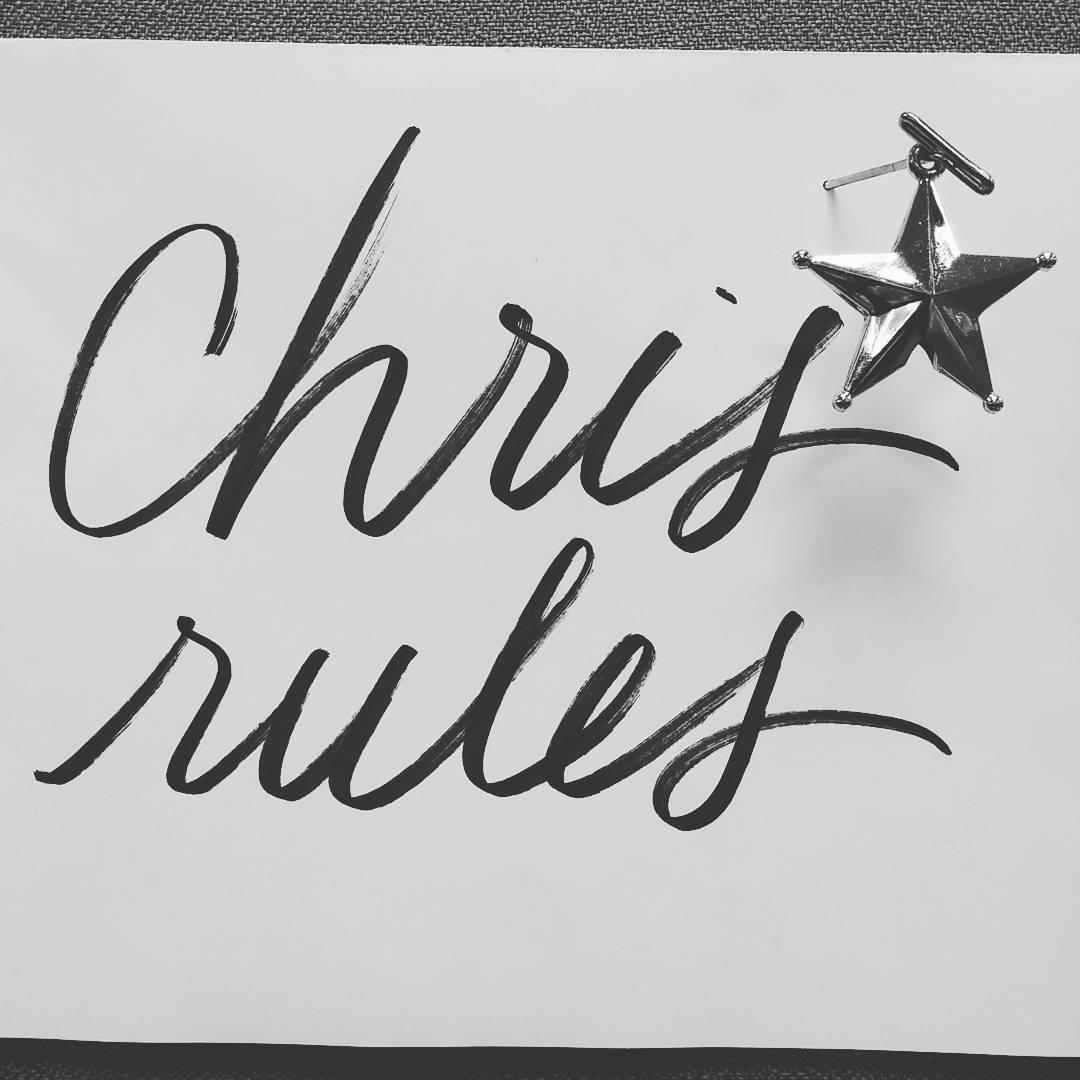 Chris
rules